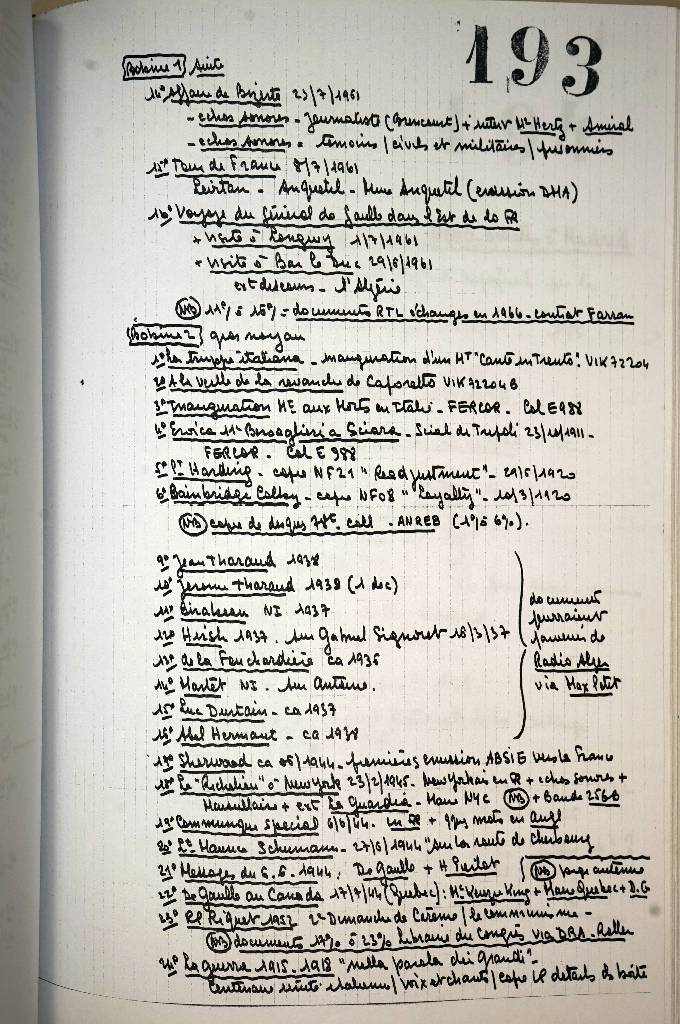 193
Bobine 1 suite
14° Affaire de Bizerte 23/7/1961
- echos sonores - Journaliste ( ) + interv Mr Hertz + Amiral
- echos sonores = temoins / civils et militaires / prisonniers
15° Tour de France 8/7/1961
- Anquetil - Mme Anquetil (emission DHA)
16° Voyage du Général de Gaulle dans l'Est de la FR
+ visite à Longwy 1/7/1961
+ visite à Bar le Duc 29/6/1961
ext discours - l'Algérie
NB 11°/ à 16°/ = documents RTL échanges en 1966 - contrat Farran
Bobine 2 gros noyau
1° La truppe italiana - inauguration d'un MT "Canto in Trento". VIK 72204
2° A la veille de la revanche de Caporetto VIK 72204 B
3° Inauguration ME aux Morts en Italie - FERCOR - Col E 988
4° Eroica 11e Bersaglieri a Sciara - Sciat de Tripoli 23/10/1911 -
FERCOR - Col E 988
5° Pt Harding - copie NF21 "Readjustment" - 29/6/1920
6° Bainbridge Colby - copie NF08 "Loyalty" - 10/3/1920
NB copie de disques 78t. coll. ANREB (1°/ à 6°/).
9° Jean Tharaud 1938
10° Jerome Tharaud 1938 (1 doc)
11° NI 1937
12° Hirsh 1937. sur Gabriel Signoret 18/3/37
13° de la Fouchardière ca 1935
14° Martet NI. sur Antoine.
15° Luc Durtain - ca 1937
16° Abel Hermant - ca 1938
documents
pourraient
provenir de
Radio Alger
via Max Petet
17° Sherwood ca 06/1944 - premières emission ABSIE vers la France
18° Le "Richelieu" à New York 23/2/1945 - New Yorkais en FR + echos sonores +
Marseillaise + ext La Guardia - Maire NYC NB + Bande 256B
19° Communiqué special 6/6/44. en FR + qques mots en Angl
20° Lt Maurice Schumann - 27/6/1944 "sur la route de Cherbourg
21° Messages du 6.6.1944, De Gaulle + H Pierlot NB antenne
22° De Gaulle au Canada 17/7/44 (Quebec) : Mc Kenzie King + Maire Quebec + D.G
23° RP Riquet 1952 2e Dimanche de Carême / le communisme -
NB documents 17°/ à 23°/ Librairie du Congrès via DBA - Roller
24° La guerra 1915-1918 "nella parola dei grandi" -
Centenaire italienne / voix et chants / copie LP details ds boîte